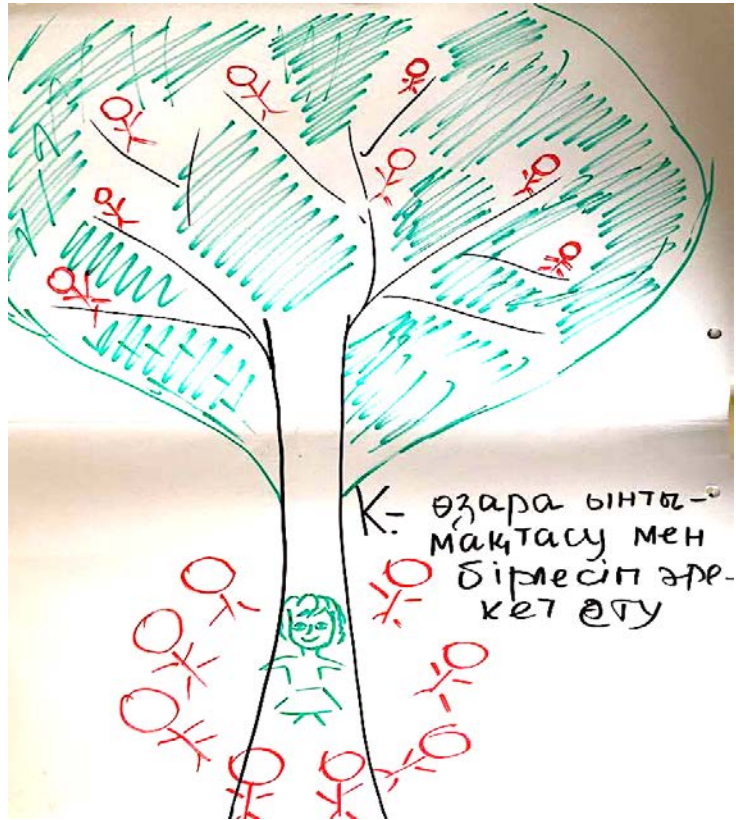 К- өзара ынты-
мақтасу мен
бірлесіп әре-
кет ету